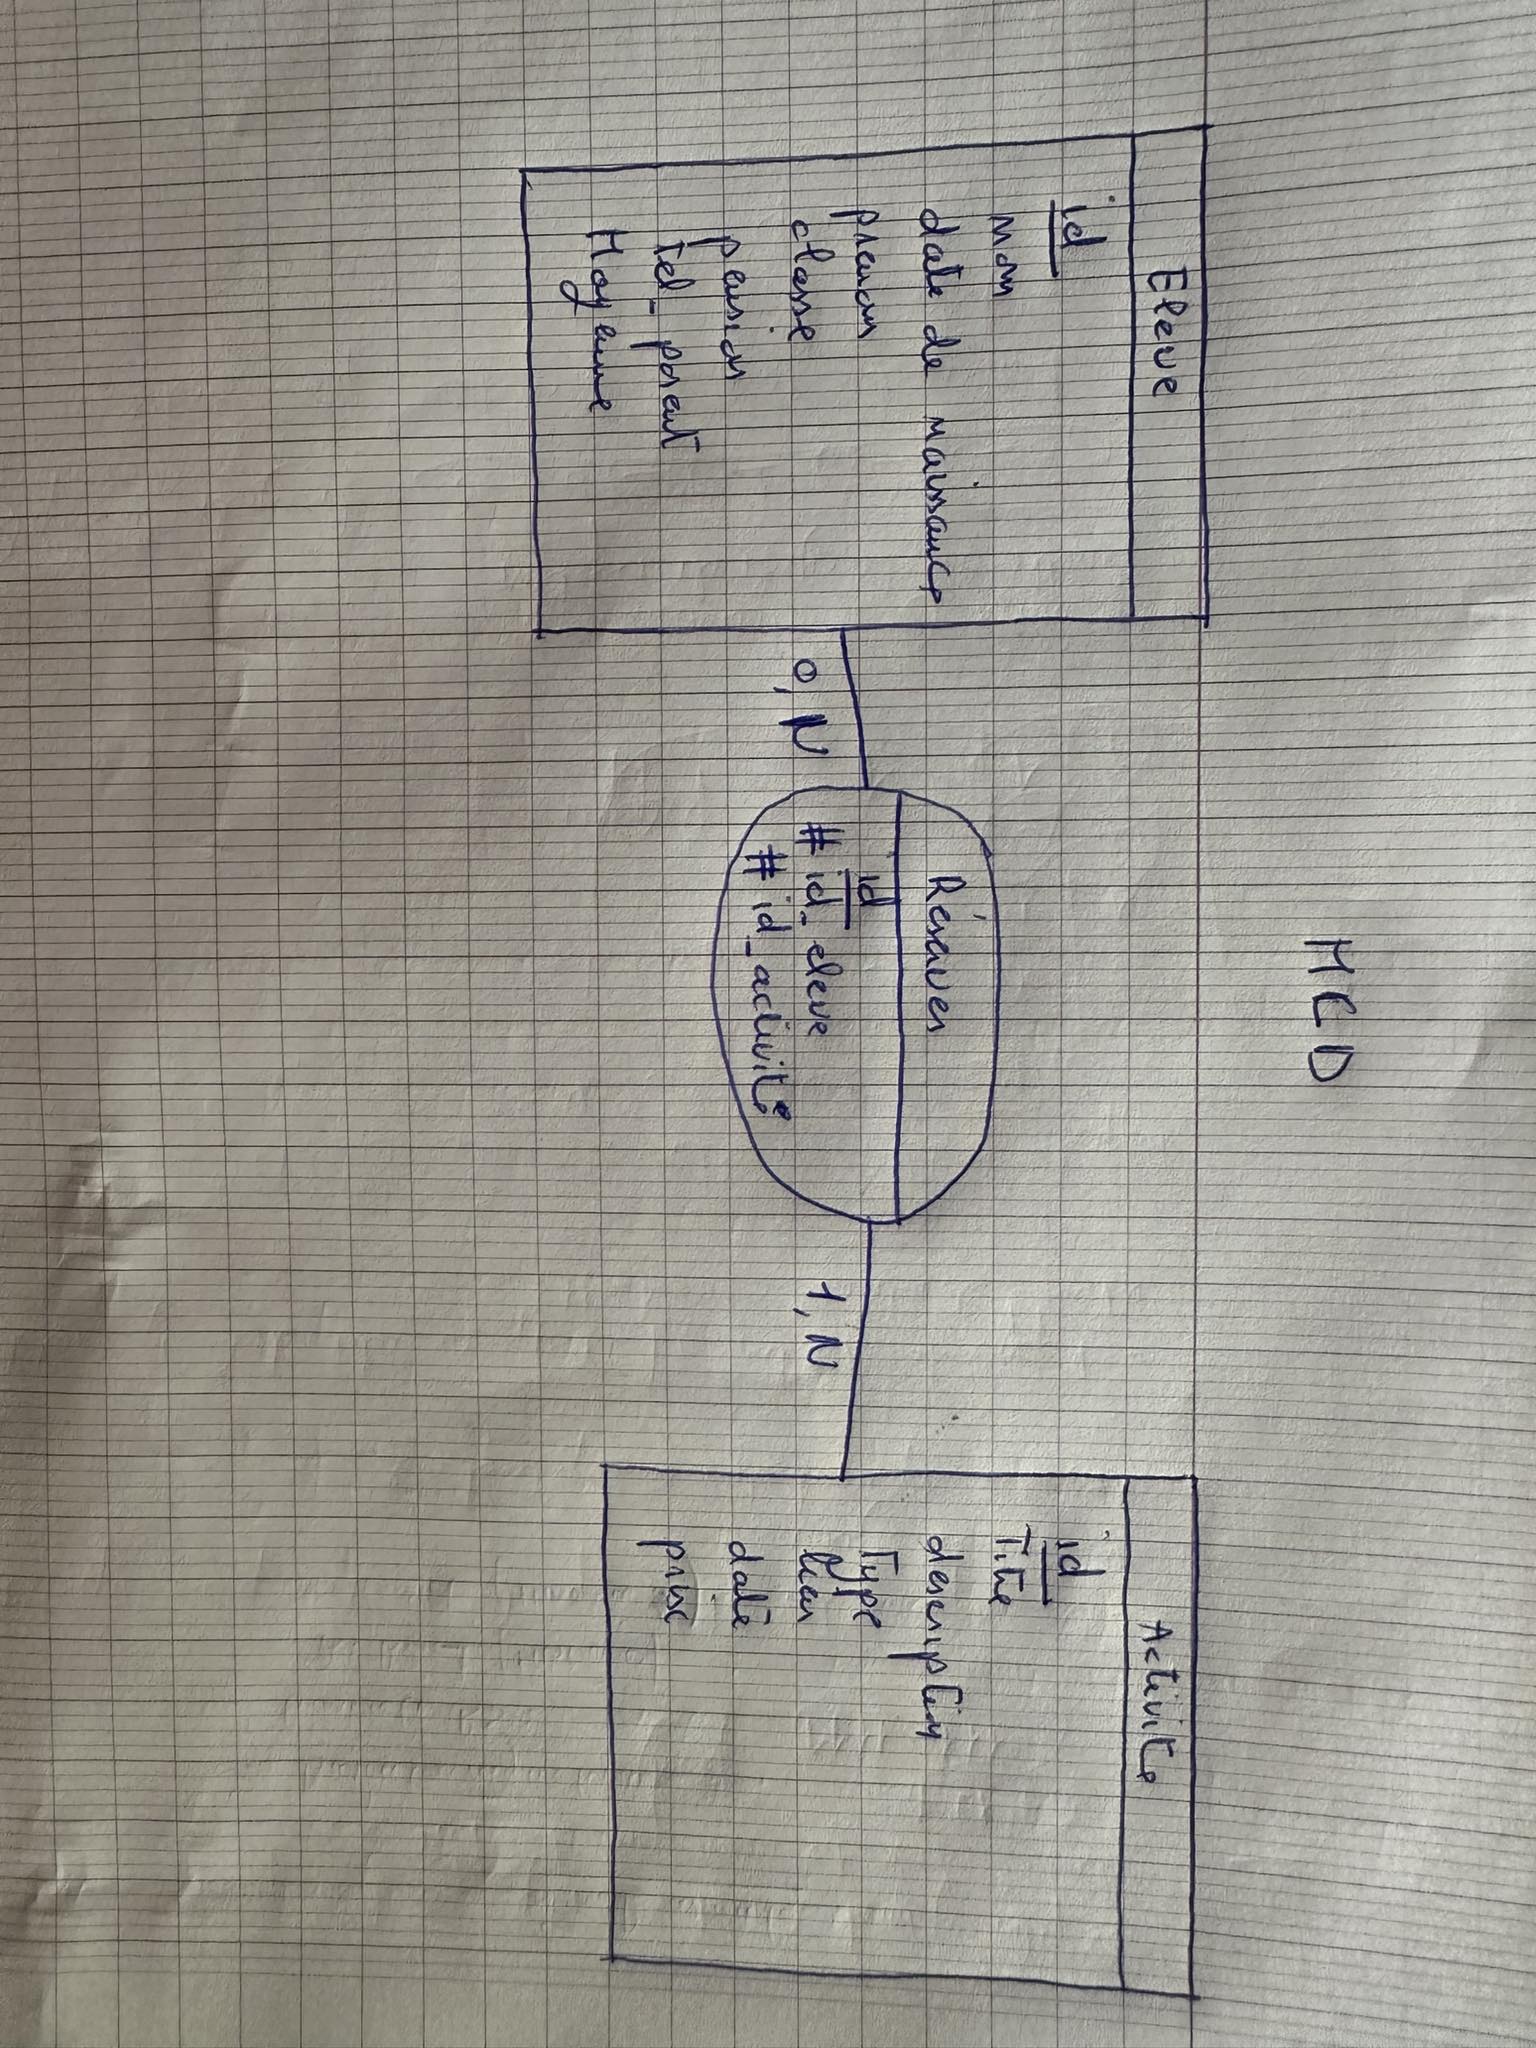 MCD
Eleve
id
nom
date de naissance
prenom
classe
pension
tel_parent
Moyenne
0,N
Réserver
id
# id_eleve
# id_activite
1,N
Activite
id
Titre
description
Type
lieu
date